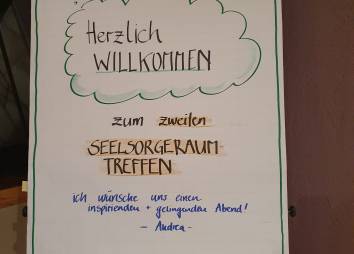 Herzlich
WILLKOMMEN
zum zweiten
SEELSORGERAUM
TREFFEN
ich wünsche uns einen
inspirienden + gelingenden Abend!
- Andrea -